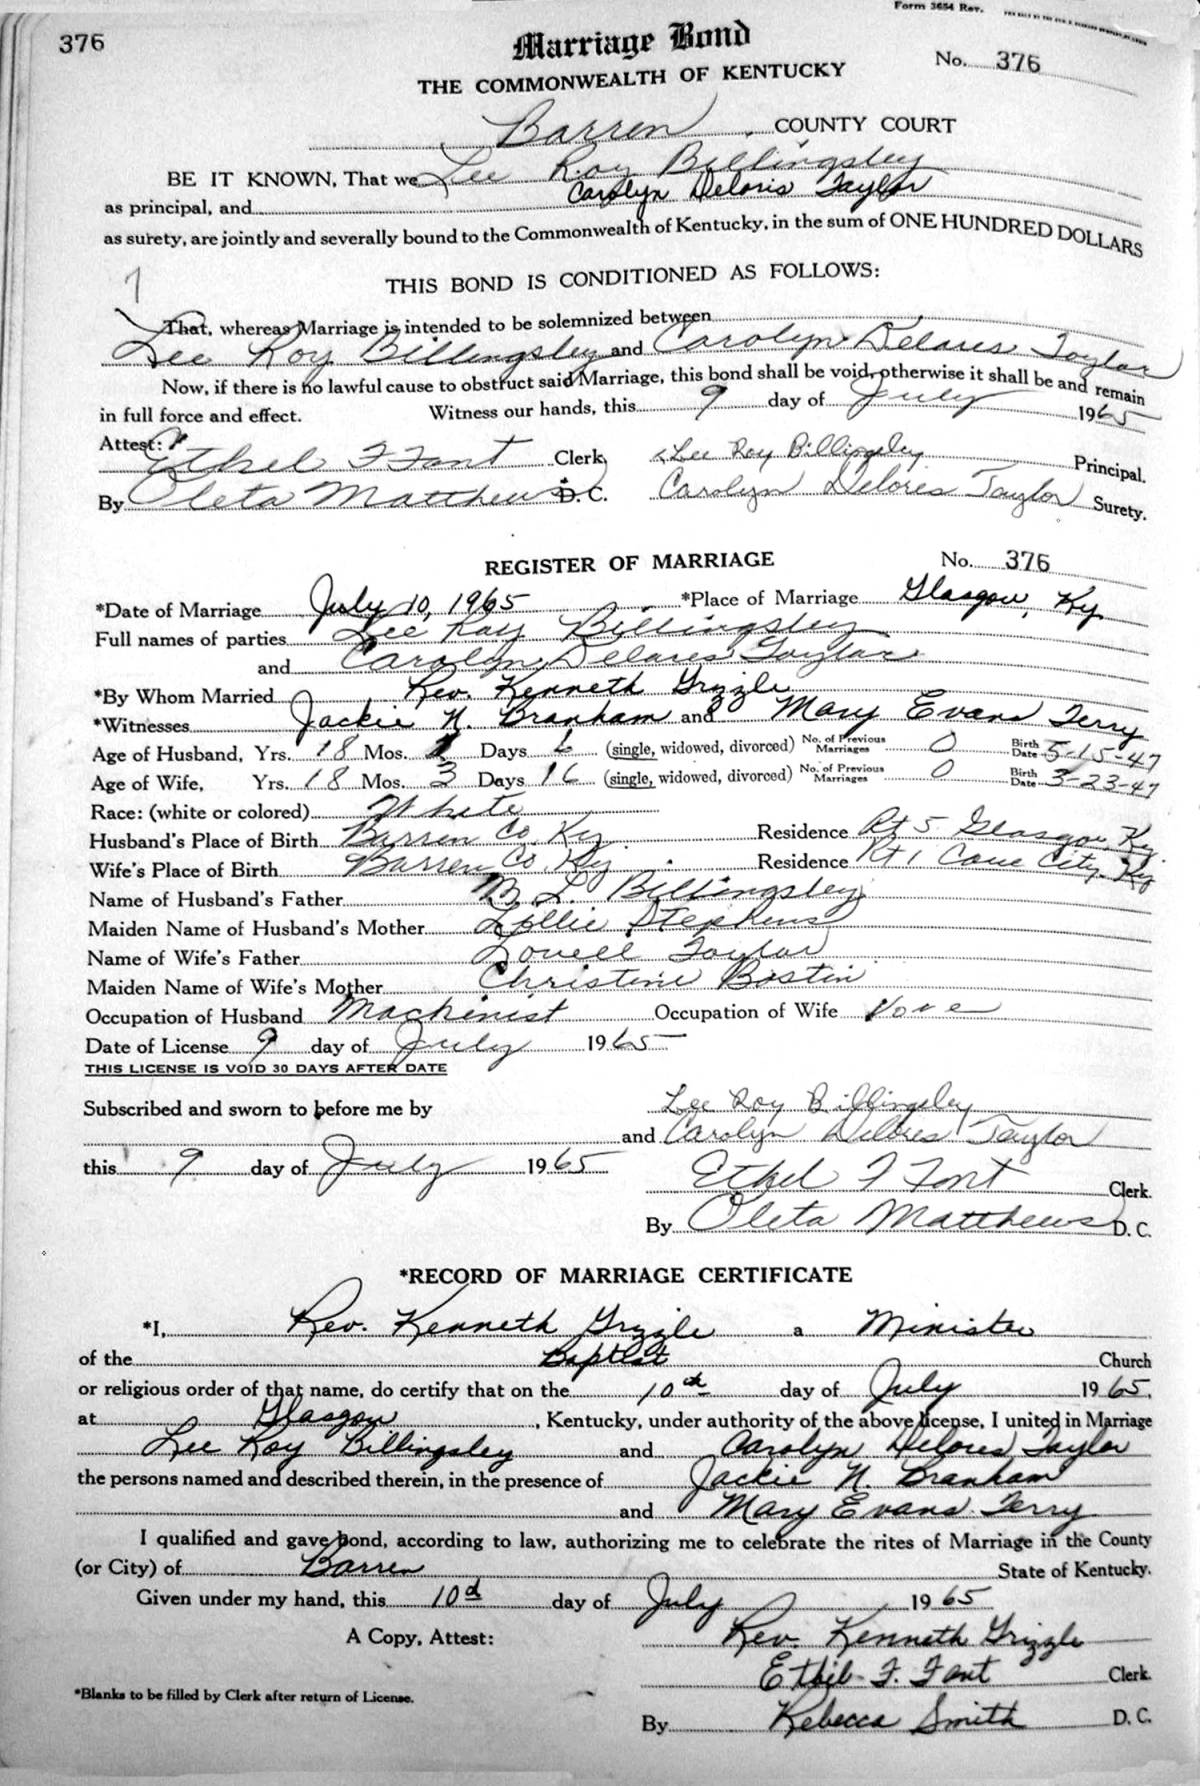 Form 3654 Rev.
376
Marriage Bond
No. 376
THE COMMONWEALTH OF KENTUCKY
Barren COUNTY COURT
BE IT KNOWN, That we Lee Roy Billingsley
as principal, and Carolyn Deloris Taylor
as surety, are jointly and severally bound to the Commonwealth of Kentucky, in the sum of ONE HUNDRED DOLLARS
THIS BOND IS CONDITIONED AS FOLLOWS:
That, whereas Marriage is intended to be solemnized between
Lee Roy Billingsley and Carolyn Delares Taylor
Now, if there is no lawful cause to obstruct said Marriage, this bond shall be void, otherwise it shall be and remain
in full force and effect. Witness our hands, this 9 day of July 1965
Attest: Ethel F Font Clerk Lee Roy Billingsley Principal.
By Oleta Matthews D.C. Carolyn Delores Taylor Surety.
REGISTER OF MARRIAGE No. 376
*Date of Marriage July 10, 1965 *Place of Marriage Glasgow, Ky
Full names of parties Lee Roy Billingsley
and Carolyn Delares Taylor
*By Whom Married Rev. Kenneth Grizzle
*Witnesses Jackie N. Branham and Mary Evans Terry
Age of Husband, Yrs. 18 Mos. 1 Days 6 (single, widowed, divorced) No. of Previous Marriages 0 Birth Date 5-15-47
Age of Wife, Yrs. 18 Mos. 3 Days 16 (single, widowed, divorced) No. of Previous Marriages 0 Birth Date 3-23-47
Race: (white or colored) White
Husband's Place of Birth Barren Co. Ky. Residence Rt 5 Glasgow, Ky.
Wife's Place of Birth Barren Co. Ky. Residence Rt 1 Cave City, Ky
Name of Husband's Father B. L. Billingsley
Maiden Name of Husband's Mother Lollie Stephens
Name of Wife's Father Lowell Taylor
Maiden Name of Wife's Mother Christine Bostin
Occupation of Husband Machinist Occupation of Wife None
Date of License 9 day of July 1965
THIS LICENSE IS VOID 30 DAYS AFTER DATE
Subscribed and sworn to before me by Lee Roy Billingsley
and Carolyn Delores Taylor
this 9 day of July 1965 Ethel F Font Clerk.
By Oleta Matthews D. C.
*RECORD OF MARRIAGE CERTIFICATE
*I, Rev. Kenneth Grizzle a Minister
of the Baptist Church
or religious order of that name, do certify that on the 10th day of July 1965,
at Glasgow, Kentucky, under authority of the above license, I united in Marriage
Lee Roy Billingsley and Carolyn Delores Taylor
the persons named and described therein, in the presence of Jackie N. Branham
and Mary Evans Terry
I qualified and gave bond, according to law, authorizing me to celebrate the rites of Marriage in the County
(or City) of Barren State of Kentucky.
Given under my hand, this 10th day of July 1965
A Copy, Attest: Rev. Kenneth Grizzle
Ethel F. Font Clerk.
*Blanks to be filled by Clerk after return of License.
By Rebecca Smith D. C.